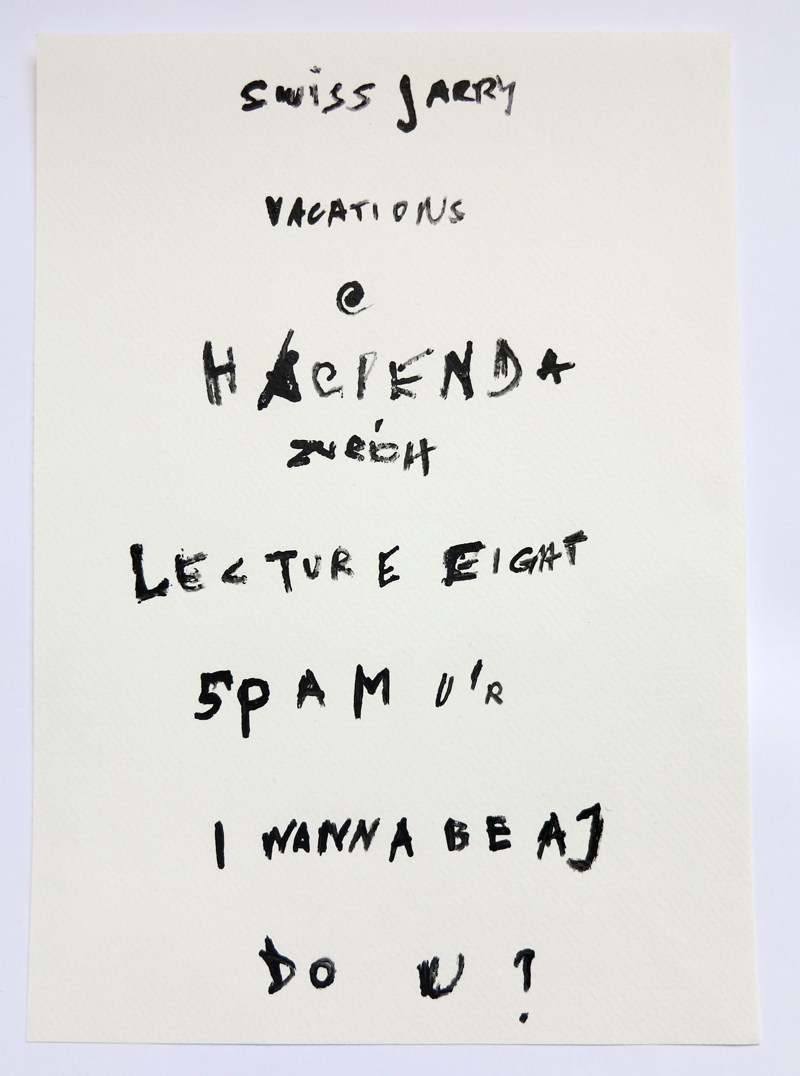 SWiSS JARRY
VACATIONS
@
HACIENDA
ZURICH
LECTURE EIGHT
SPAM U'R
I WANNA BE AJ
DO U ?